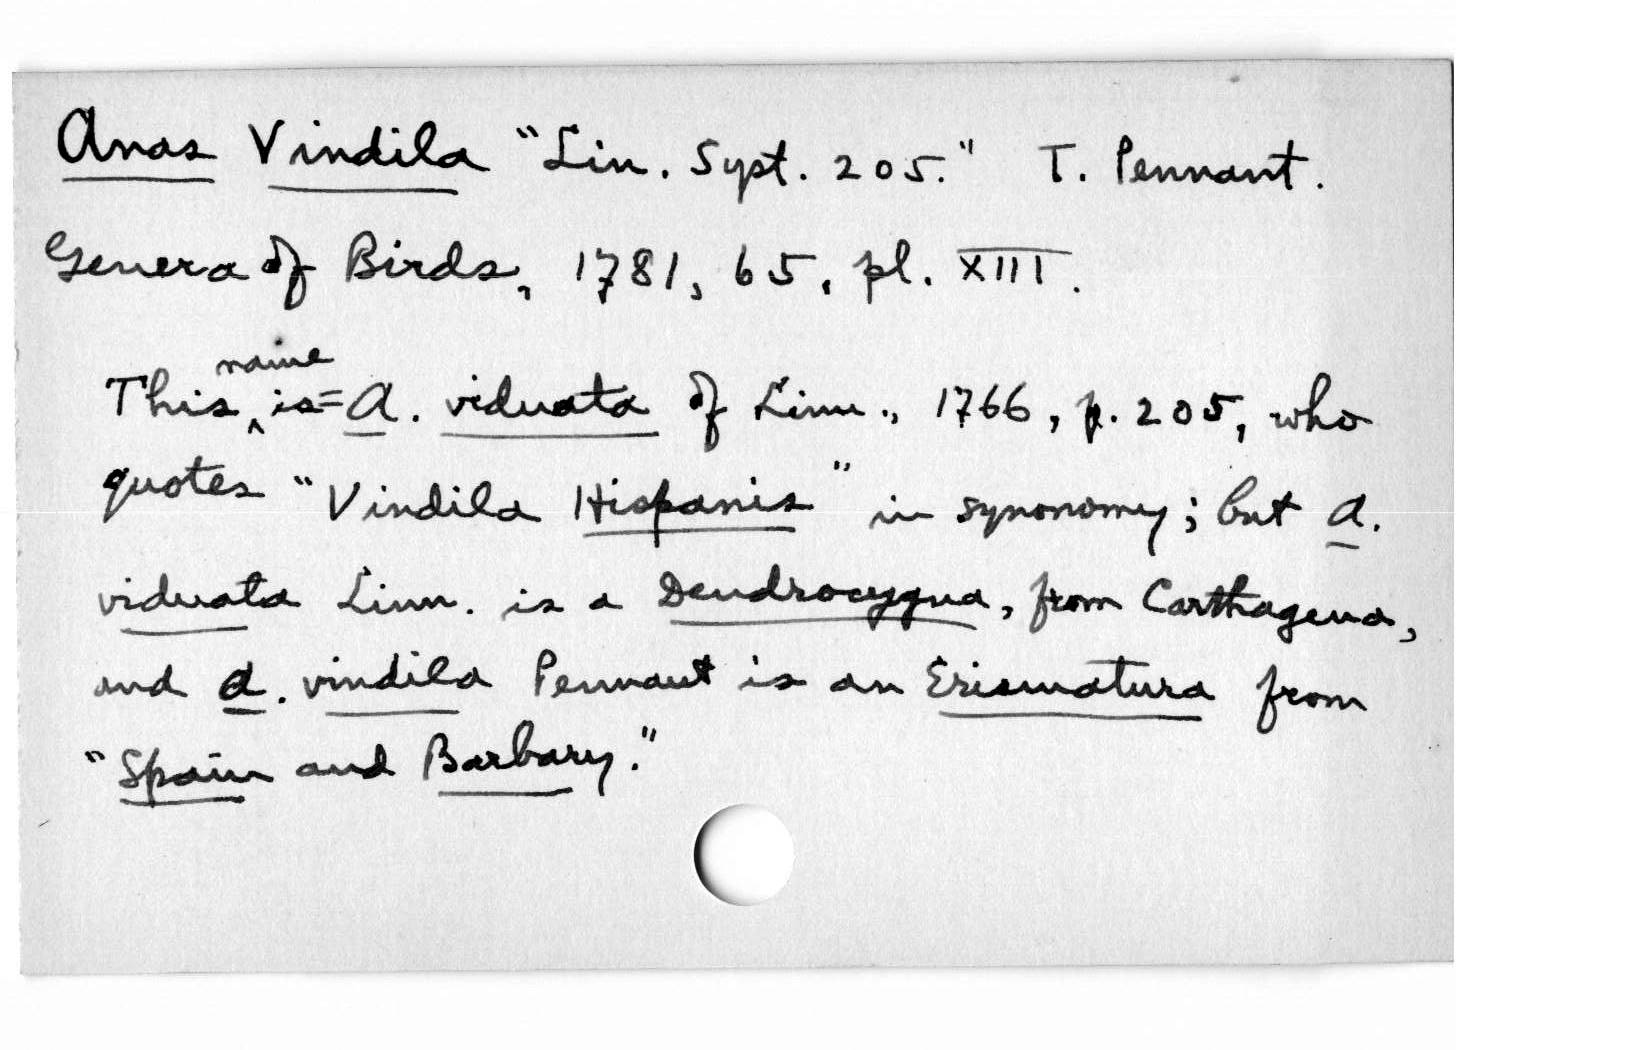 Anas Vindila "Lin. Syst. 205." T. Pennant.
Genera of Birds, 1781, 65, pl. XIII.
This name is = A. viduata of Linn., 1766, p. 205, who
quotes "Vindila Hispanis" in synonomy; but A.
viduata Linn. is a Dendrocygna, from Carthagena,
and A. vindila Pennant is an Erismatura from
"Spain and Barbary."